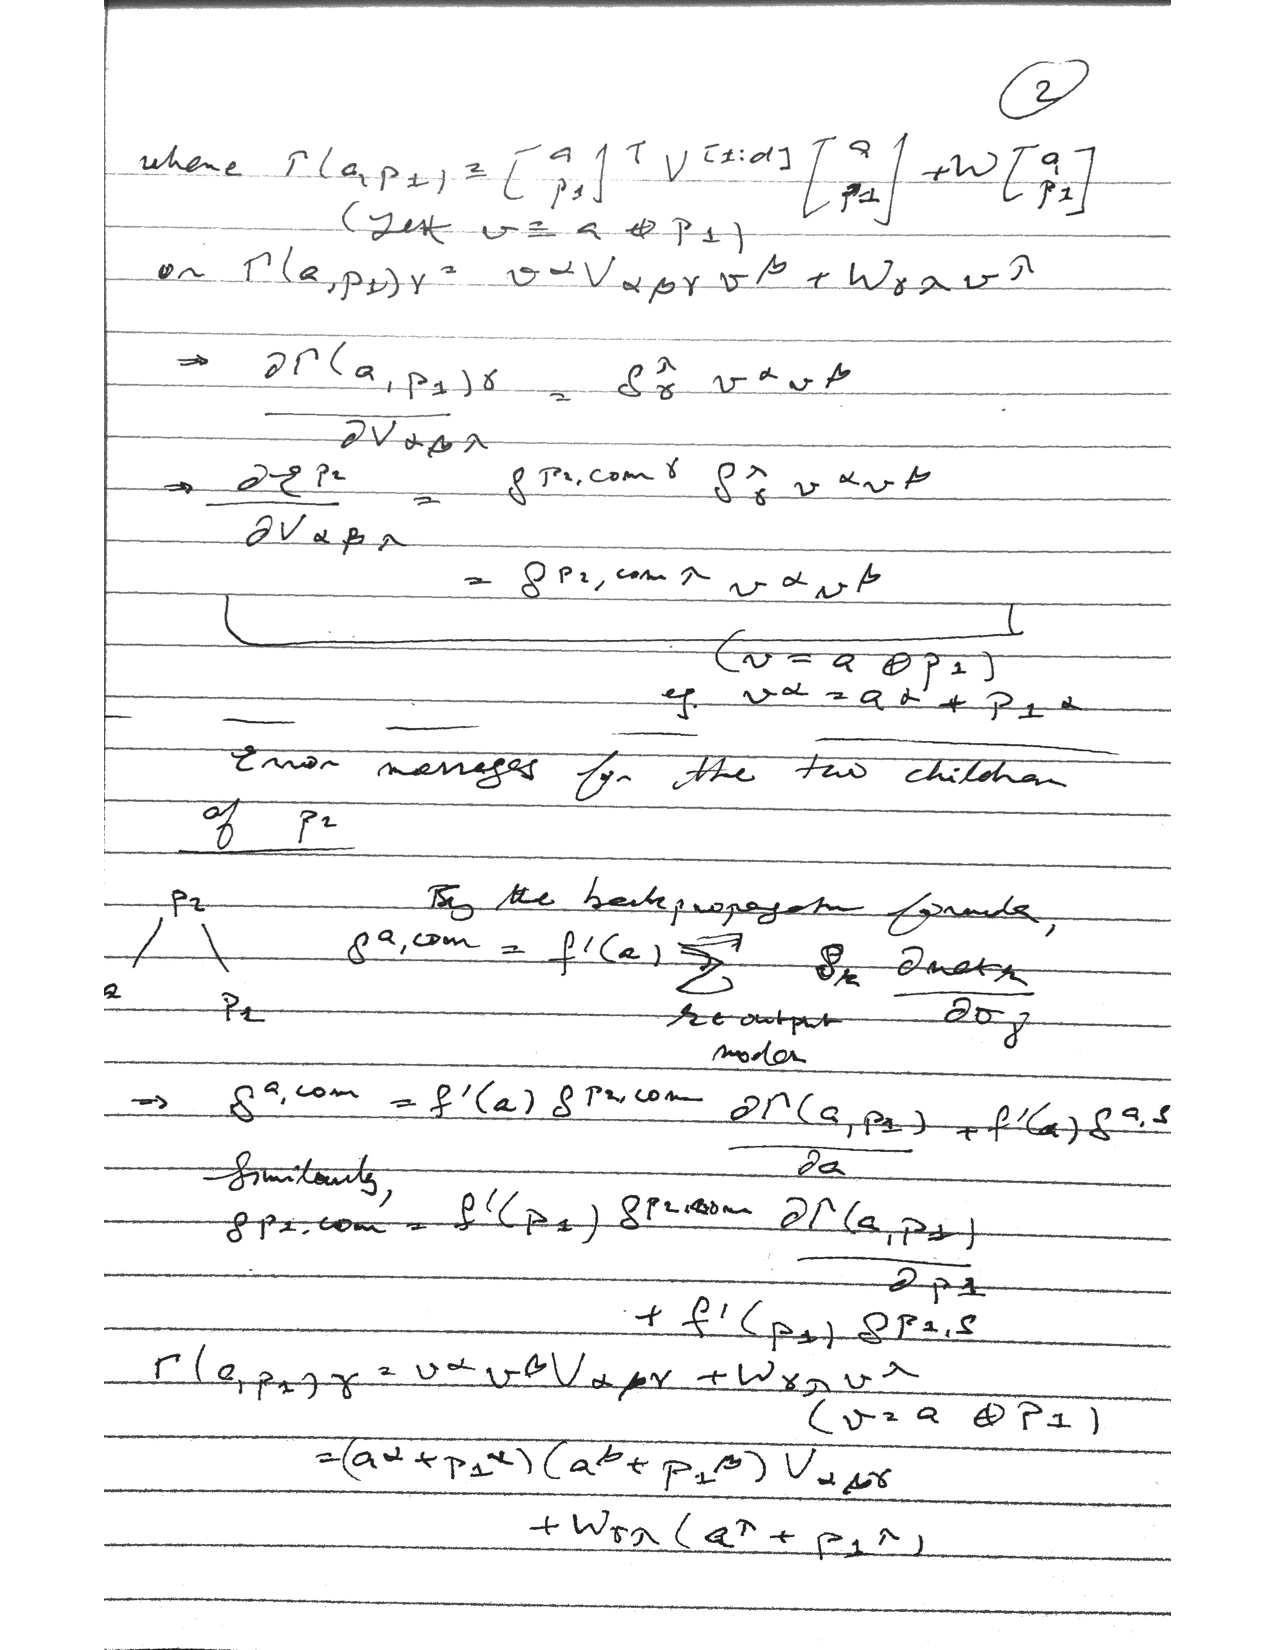 2
where Γ(a,p1) = [a p1]^T V^[1:d] [a p1] + W [a p1]
(Let v = a ⊕ p1)
or Γ(a,p1)γ = v^α V_αβγ v^β + W_γλ v^λ
⇒ ∂Γ(a,p1)γ / ∂V_αβλ = δ_γ^λ v^α v^β
⇒ ∂ξ^p2 / ∂V_αβλ = δ^p2,com γ δ_γ^λ v^α v^β
= δ^p2,com λ v^α v^β
(v = a ⊕ p1)
eg. v^α = a^α + p1^α
Error messages for the two children
of p2
p2
a p1
By the backpropagatn formula,
δ^a,com = f'(a) Σ δ_k ∂net_k / ∂o_j
k ∈ output
nodes
⇒ δ^a,com = f'(a) δ^p2,com ∂Γ(a,p1) / ∂a + f'(a) δ^a,s
Similarly,
δ^p1,com = f'(p1) δ^p2,com ∂Γ(a,p1) / ∂p1
+ f'(p1) δ^p1,s
Γ(a,p1)γ = v^α v^β V_αβγ + W_γλ v^λ
(v = a ⊕ p1)
= (a^α + p1^α)(a^β + p1^β) V_αβγ
+ W_γλ (a^λ + p1^λ)